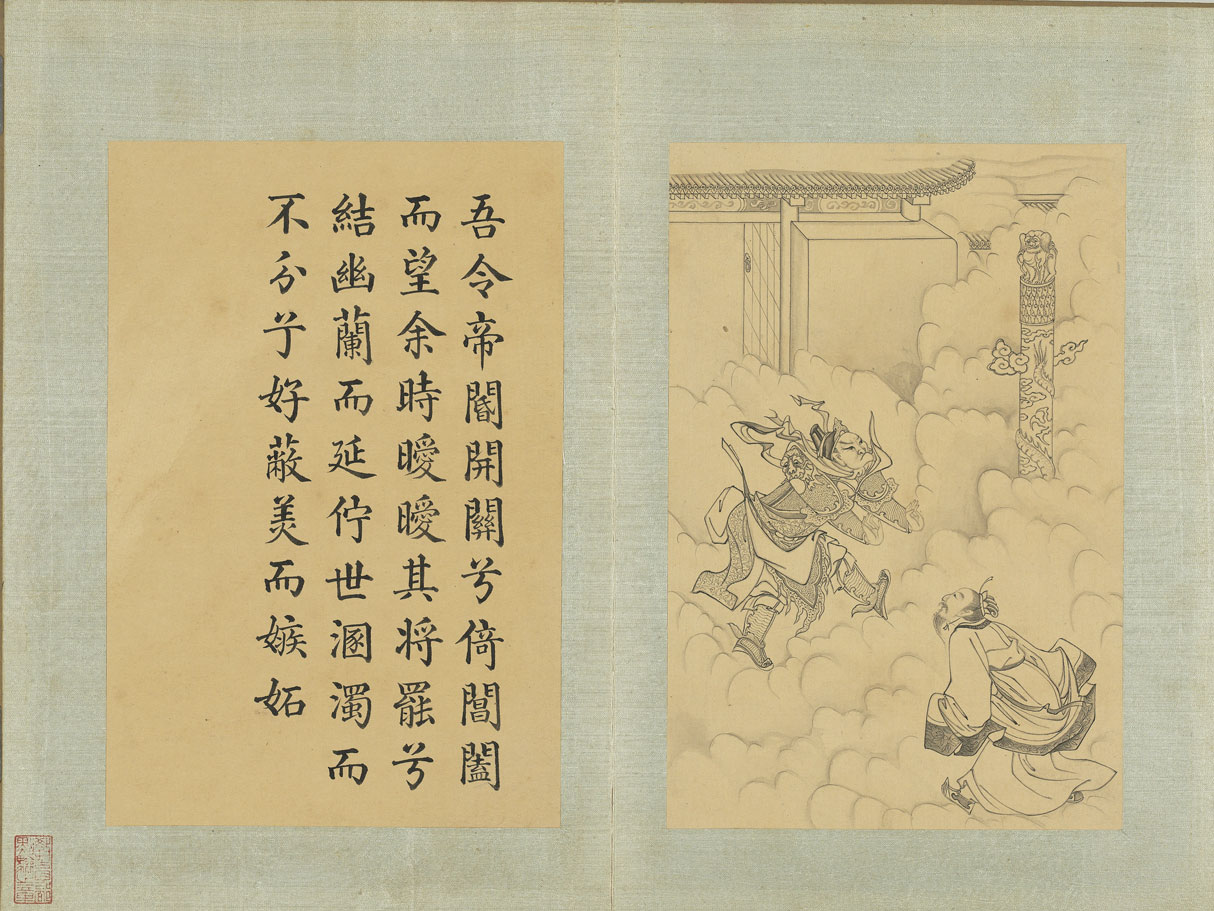 吾令帝閽開關兮倚閶闔
而望余時曖曖其将罷兮
結幽蘭而延佇世溷濁而
不分兮好蔽美而嫉妬